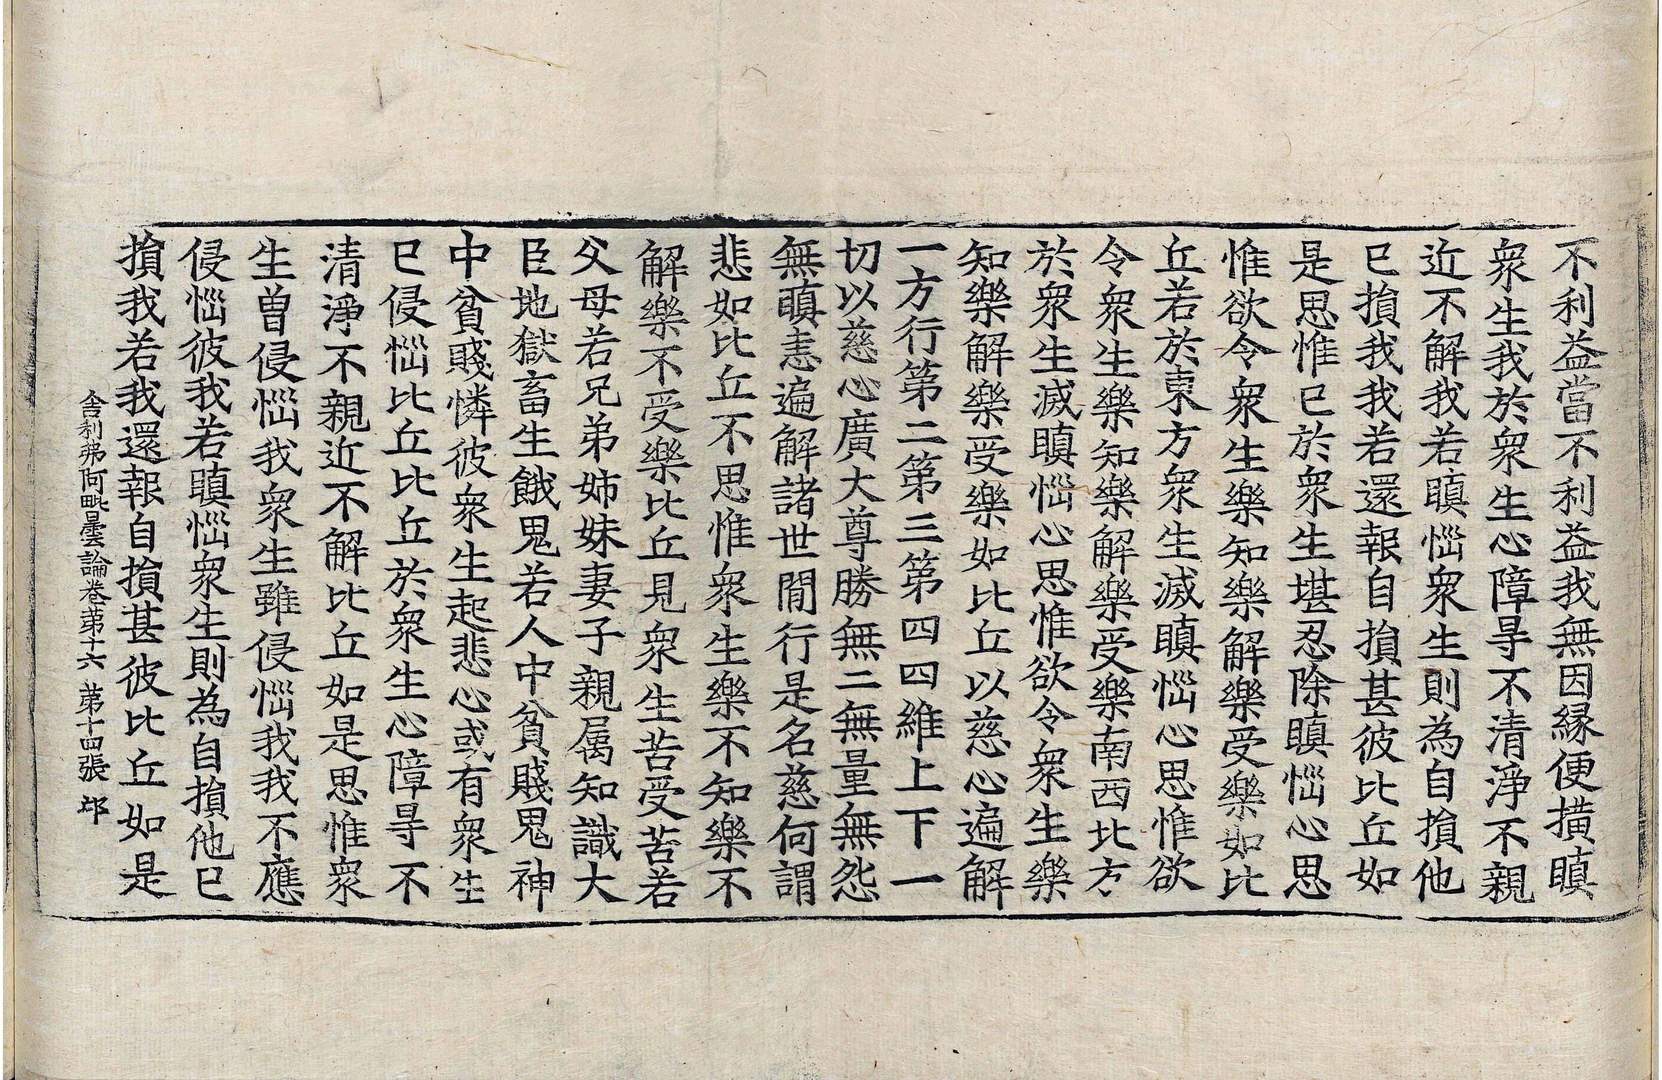 不利益當不利益我無因緣便撗瞋
衆生我於衆生心障㝵不清淨不親
近不解我若瞋惱衆生則為自損他
已損我我若還報自損甚彼比丘如
是思惟已於衆生堪忍除瞋惱心思
惟欲令衆生樂知樂解樂受樂如比
丘若於東方衆生滅瞋惱心思惟欲
令衆生樂知樂解樂受樂南西北方
於衆生滅瞋惱心思惟欲令衆生樂
知樂解樂受樂如比丘以慈心遍解
一方行第二第三第四四維上下一
切以慈心廣大尊勝無二無量無怨
無瞋恚遍解諸世間行是名慈何謂
悲如比丘不思惟衆生樂不知樂不
解樂不受樂比丘見衆生苦受苦若
父母若兄弟姉妹妻子親属知識大
臣地獄畜生餓鬼若人中貧賤鬼神
中貧賤憐彼衆生起悲心或有衆生
已侵惱比丘比丘於衆生心障㝵不
清淨不親近不解比丘如是思惟衆
生曾侵惱我衆生雖侵惱我我不應
侵惱彼我若瞋惱衆生則為自損他已
損我若我還報自損甚彼比丘如是
舍利弗阿毗曇論卷苐十六 苐十四張 邙